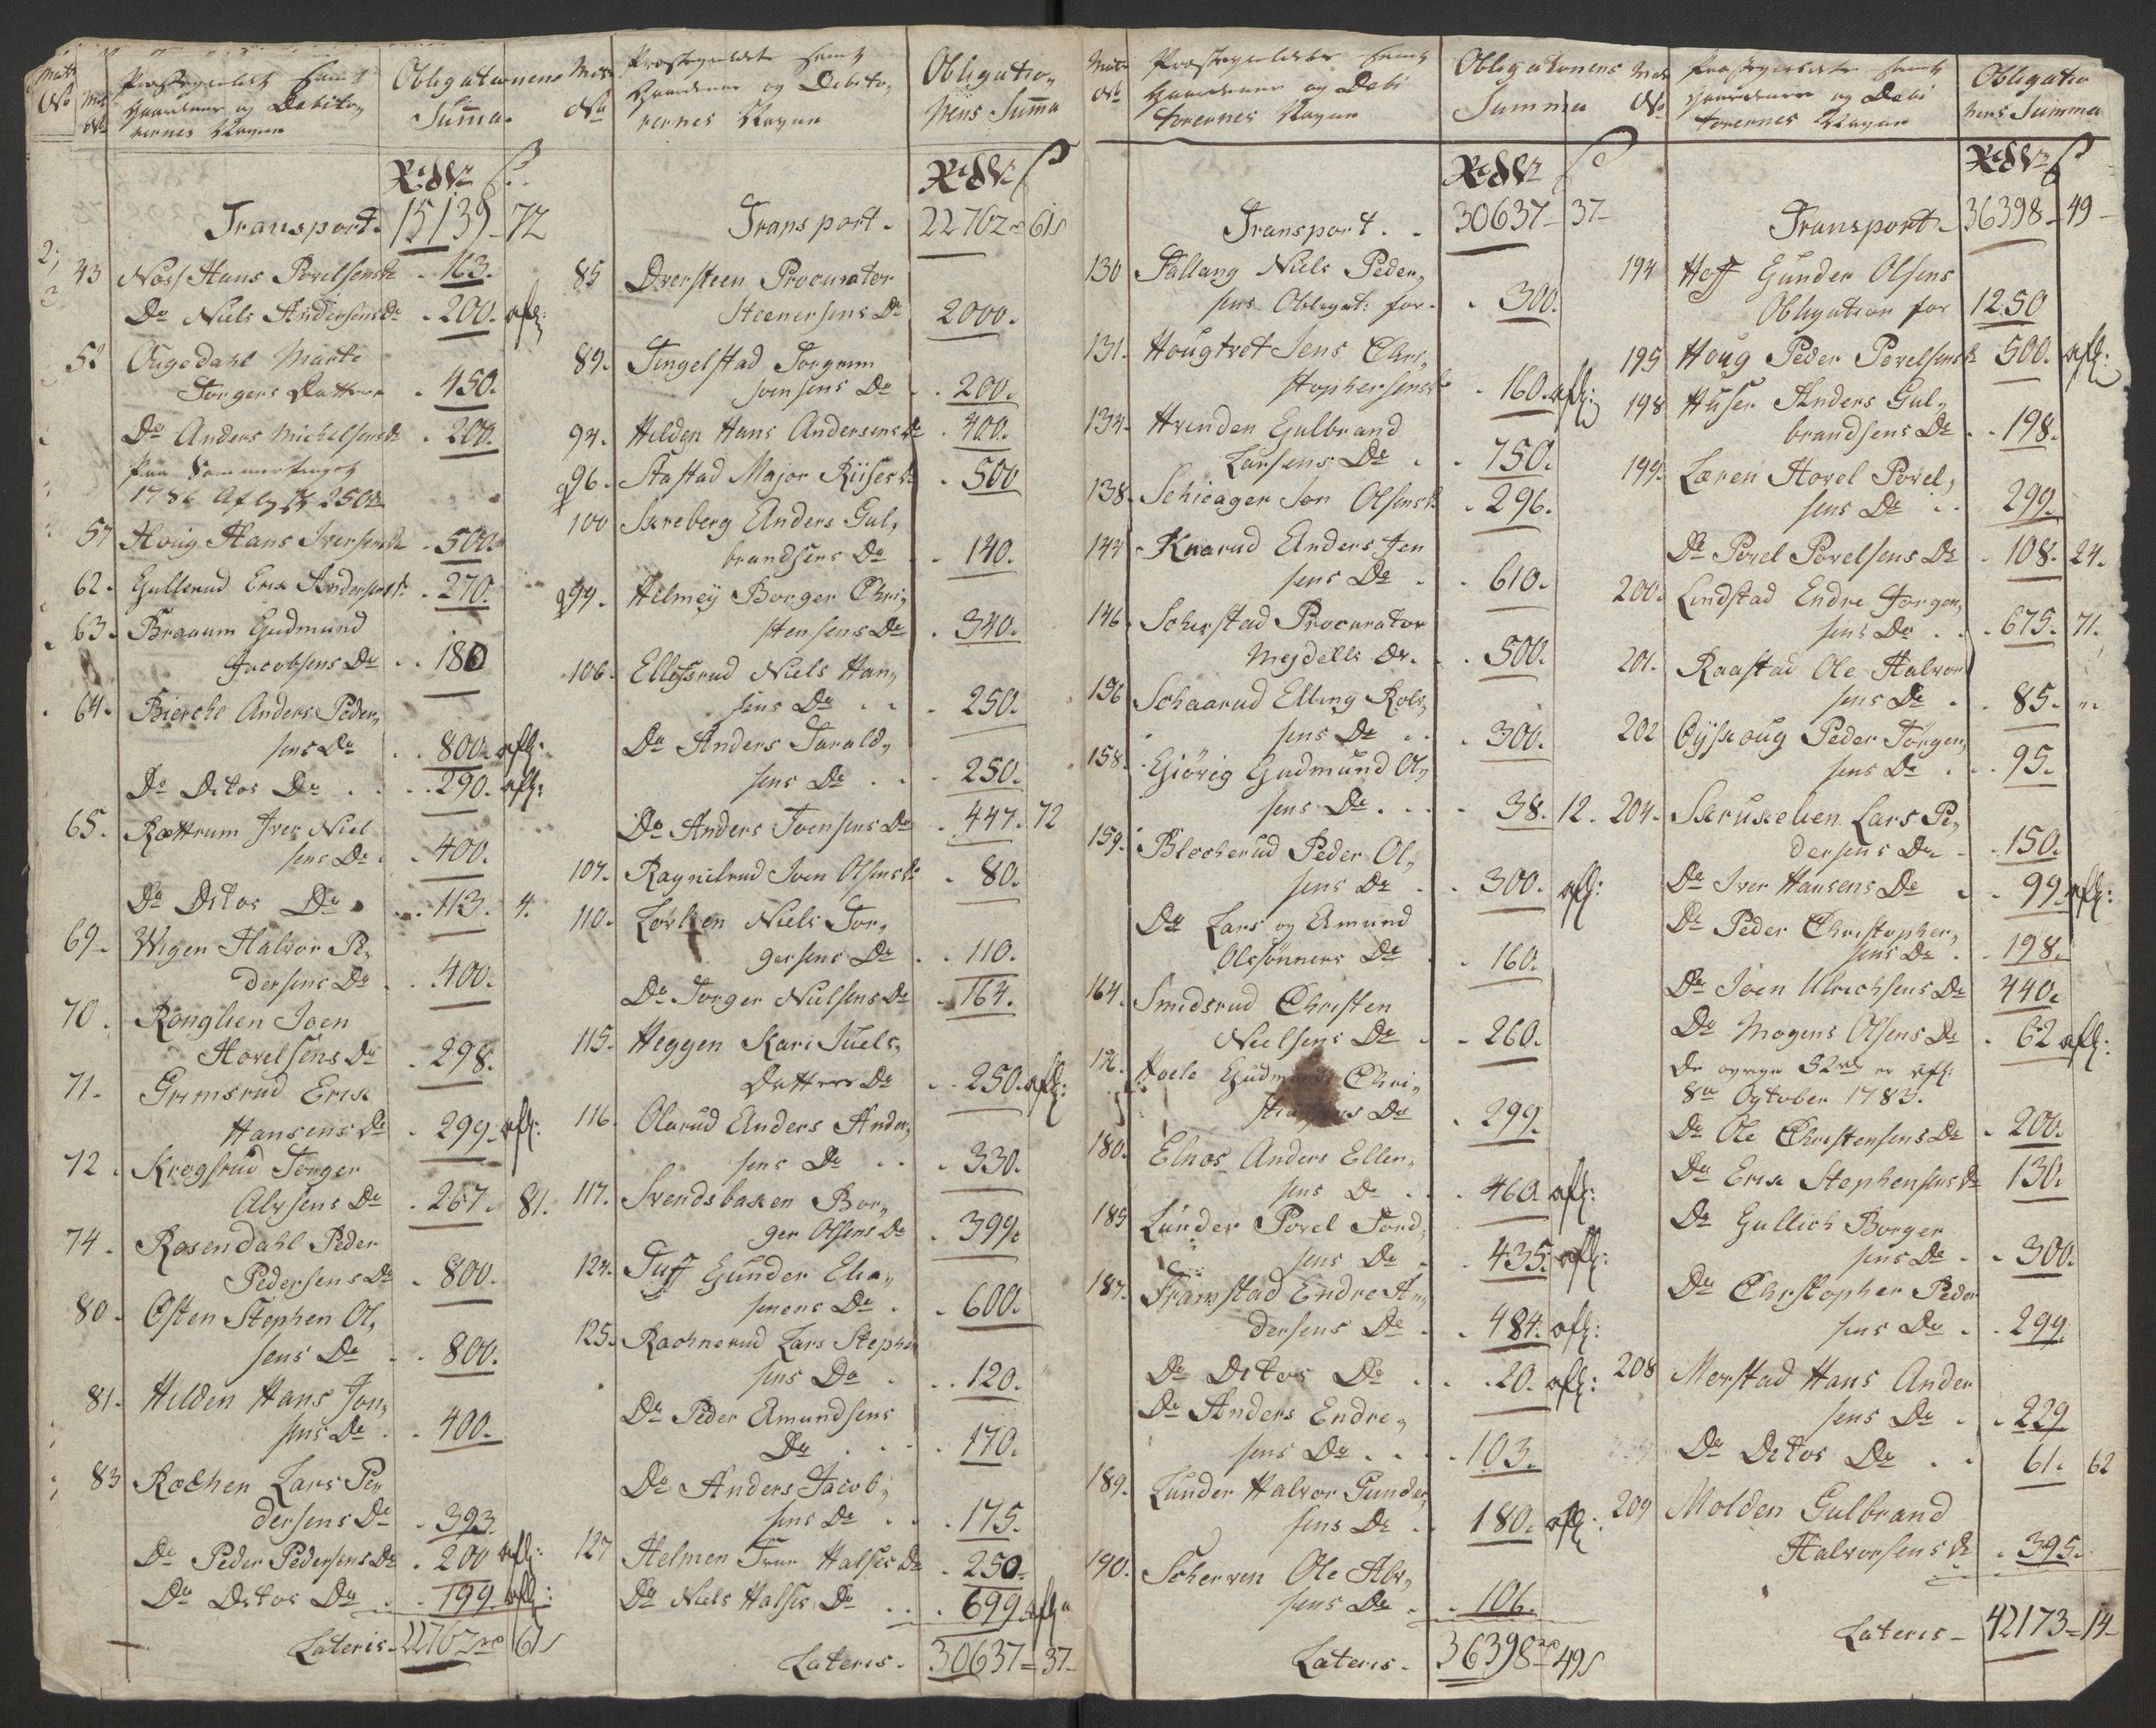 Matr No
Mat No
Præstegieldets samt
Gaardenes og Debito,
rernes Nagne
Obligationens
Summa.
Rdlr ß
Transport. 15139 72
43 Noss Hans Povelsens Do 163.
Do Niels Andersens Do 200. afl:
52 Ougedahl Marte
Torgers Datters 450.
Do Anders Michelsens Do 200.
paa Sommertinget
1786 Afl 250rd
57 Houg Hans Iversens Do 500.
62. Gullerud Erik Andersens Do 270.
63. Braaum Gudmund
Jacobsens Do 180
64. Bierche Anders Peder,
sens Do 800. afl:
Do Ditos Do 290. afl:
65. Rættrum Iver Niel
sens Do 400.
Do Ditos Do 113. 4.
69. Wigen Halvor Pe,
dersens Do 400.
70. Ronglien Joen
Hovelsens Do 298.
71. Grimsrud Erik
Hansens Do 299. afl:
72. Krogsrud Torger
Alvsens Do 267. 81.
74. Rosendahl Peder
Pedersens Do 800.
80. Østen Stephen Ol,
sens Do 800.
81. Hilden Hans Jon,
sens Do 400.
83 Rochen Lars Pe,
dersens Do 393.
Do Peder Pedersens Do 200 afl:
Do Ditos Do 199 afl:
Lateris 22762 rd 61 s
Mat No
Præstegieldets samt
Gaardenes og Debito,
rernes Nagne
Obligatio,
nens Summa
Rdlr ß
Transport. 22762 61 s
85 Dversteen Procurator
Steenersens Do 2000.
89. Tingelstad Torgrim
Joensens Do 200.
94. Hilden Hans Andersens Do 400.
96. Stastad Major Riises Do 500
100 Skreberg Anders Gul,
brandsens Do 140.
99. Helmey Borger Chri,
stensens Do 340.
106. Ellefsrud Niels Han,
sens Do 250.
Do Anders Tarald,
sens Do 250.
Do Anders Joensens Do 447. 72
107. Ragnilrud Joen Olsens Do 80.
110. Lovlien Niels Tor,
gersens Do 110.
Do Torger Nielsens Do 164.
115. Heggen Kari Juels,
Datters Do 250. afl:
116. Olarud Anders Ander,
sens Do 330.
117. Svendsbaken Bor,
ger Olsens Do 399.
124. Tuff Gunder Elia,
senens Do 600.
125. Rachnerud Lars Stephen
sens Do 120.
Do Peder Amundsens
Do 170.
Do Anders Jacob,
sens Do 175.
127 Helmen Frue Halses Do 250.
Do Niels Halses Do 699 afl
Lateris. 30637 37
Matr No
Præstegieldets samt
Gaardenes og Debi
torernes Nagne
Obligationens
Summa
Rdlr ß
Transport. 30637 37
130 Fallang Niels Peder,
sens Obligat: for 300.
131. Hougtvet Jens Chri,
stophersens Do 160. afl:
134. Hvinden Gulbrand
Larsens Do 750.
138. Schieager Jon Olsens Do 296.
144 Knarud Anders Jen
sens Do 610.
146. Scherstad Procurator
Mejdells Do 500.
156 Schaarud Elling Rolv,
sens Do 300.
158. Giörig Gudmund Ol,
sens Do 38. 12.
159. Blocherud Peder Ol,
sens Do 300. afl:
Do Lars og Amund
Olssønners Do 160.
164. Smidsrud Christen
Nielsens Do 260.
Hoele Gudmund Chri,
Do 299.
180. Elnos Anders Ellen,
sens Do 460. afl:
185 Lunder Povel Tord,
sens Do 435. afl:
187. Framstad Endre An,
dersens Do 484. afl:
Do Ditos Do 20. afl:
Do Anders Endre,
sens Do 103.
189. Lunder Halvor Gunder,
sens Do 180. afl:
190. Scherven Ole Alv,
sens Do 106.
Lateris. 36398 rd 49 s
Mat No
Præstegieldets samt
Gaardenes og Debi
torernes Nagne
Obligatio
nens Summa
Rdlr ß
Transport 36398 49
194 Hoff Gunder Olsens
Obligation for 1250
195 Houg Peder Povelsens Do 500. afl:
198 Huser Anders Gul,
brandsens Do 198.
199. Læren Hovel Povel,
sens Do 299.
Do Povel Povelsens Do 108. 24.
200. Lindstad Endre Torger,
sens Do 675. 71.
201. Raastad Ole Halvor
sens Do 85. "
202 Øyskoug Peder Torger,
sens Do 95.
204. Skruklien Lars Pe,
dersens Do 150.
Do Iver Hansens Do 99 afl:
Do Peder Christopher,
sens Do 198.
Do Joen Ulrichsens Do 440.
Do Mogens Olsens Do 62 afl:
De øvrige 32rd er afl:
8de October 1783.
Do Ole Christensens Do 200.
Do Erik Stephensens Do 130.
Do Gullich Borger
sens Do 300.
Do Christopher Peder
sens Do 299.
208 Morstad Hans Ander
sens Do 229
Do Ditos Do 61. 62
209 Molden Gulbrand
Halvorsens Do 395.
Lateris 42173 14